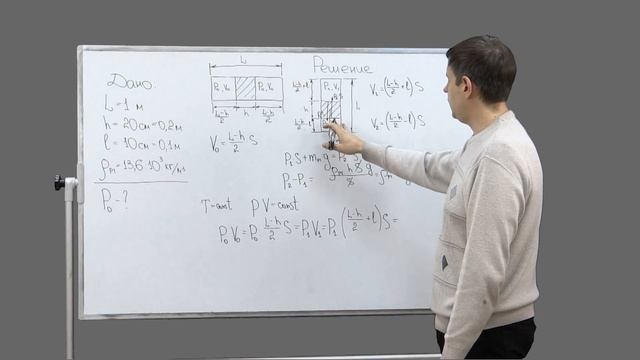 Дано:
L = 1 м
h = 20 см = 0,2 м
l = 10 см = 0,1 м
ρm = 13,6·10³ кг/м³
P₀ - ?
L
P₀, V₀
P₀, V₀
(L-h)/2
h
(L-h)/2
V₀ = (L-h)/2 S
Решение
P₁, V₁
(L-h)/2 + l
h
L
V₁ = ((L-h)/2 + l) S
V₂ = ((L-h)/2 - l) S
P₁S + mₘg = P₂ S
P₂ - P₁ =
T-const PV-const
P₀V₀ = P₀ (L-h)/2 S = P₁V₁ = P₁ ((L-h)/2 + l) S =